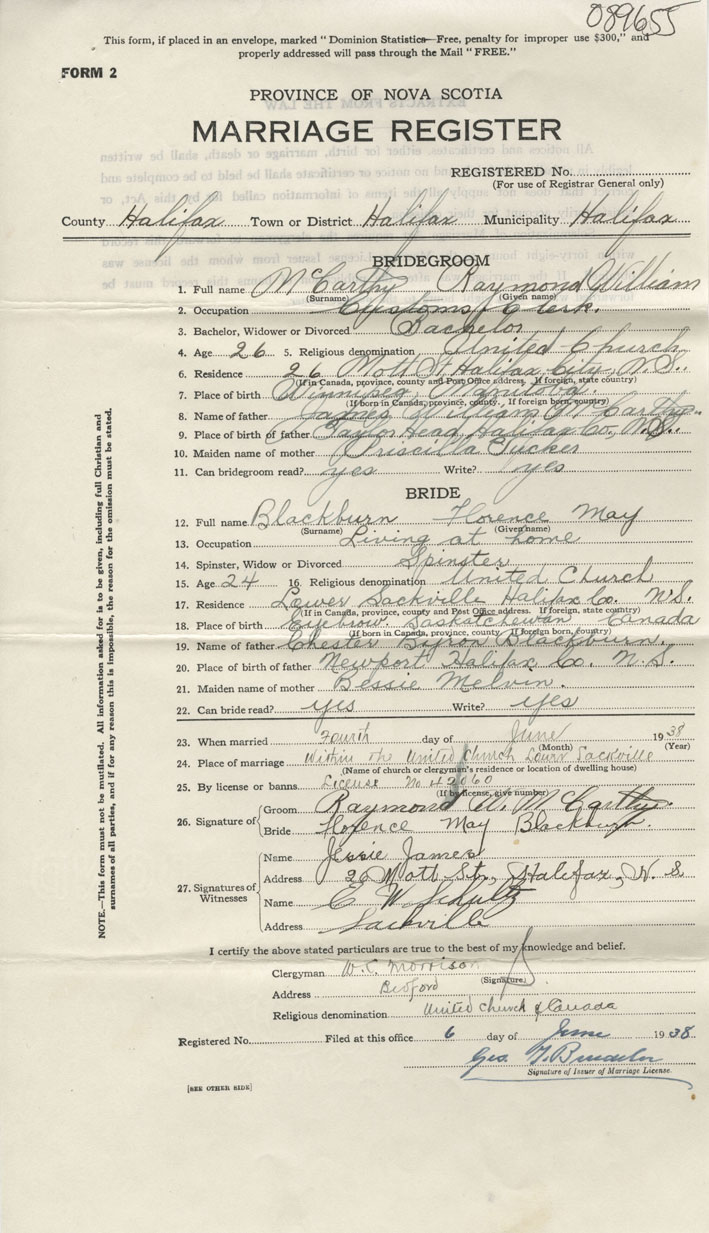 089655
This form, if placed in an envelope, marked "Dominion Statistics—Free, penalty for improper use $300," and
properly addressed will pass through the Mail "FREE."
FORM 2
PROVINCE OF NOVA SCOTIA
MARRIAGE REGISTER
REGISTERED No.
(For use of Registrar General only)
County Halifax Town or District Halifax Municipality Halifax
BRIDEGROOM
1. Full name McCarthy Raymond William
(Surname) (Given name)
2. Occupation Customs Clerk.
3. Bachelor, Widower or Divorced Bachelor
4. Age 26 5. Religious denomination United Church
6. Residence 26 Mott St. Halifax City, N.S.
(If in Canada, province, county and Post Office address. If foreign, state country)
7. Place of birth Winnipeg, Manitoba.
(If born in Canada, province, county. If foreign, country)
8. Name of father James William McCarthy.
9. Place of birth of father Taylor Head, Halifax Co. N.S.
10. Maiden name of mother Priscilla Tucker
11. Can bridegroom read? yes Write? yes
BRIDE
12. Full name Blackburn Florence May
(Surname) (Given name)
13. Occupation Living at home
14. Spinster, Widow or Divorced Spinster
15. Age 24 16. Religious denomination United Church
17. Residence Lower Sackville Halifax Co. N.S.
(If in Canada, province, county and Post Office address. If foreign, state country)
18. Place of birth Eyebrow. Saskatchewan Canada
(If born in Canada, province, county. If foreign, country)
19. Name of father Chester Byron Blackburn.
20. Place of birth of father Newport Halifax Co. N.S.
21. Maiden name of mother Bessie Melvin.
22. Can bride read? yes Write? yes
23. When married Fourth day of June 1938
(Month) (Year)
24. Place of marriage Within the United Church Lower Sackville
(Name of church or clergyman's residence or location of dwelling house)
25. By license or banns License No 42060
(If by license, give number)
26. Signature of Groom Raymond W. McCarthy.
Bride Florence May Blackburn.
27. Signatures of Witnesses
Name Jessie James
Address 26 Mott St., Halifax, N.S
Name C. W. Schultz
Address Sackville
I certify the above stated particulars are true to the best of my knowledge and belief.
Clergyman W.C. Morrison
(Signature)
Address Bedford
Religious denomination United Church of Canada
Registered No. Filed at this office 6 day of June 1938
Geo.
Signature of Issuer of Marriage License.
[SEE OTHER SIDE]
NOTE.—This form must not be mutilated. All information asked for is to be given, including full Christian and
surnames of all parties, and if for any reason this is impossible, the reason for the omission must be stated.